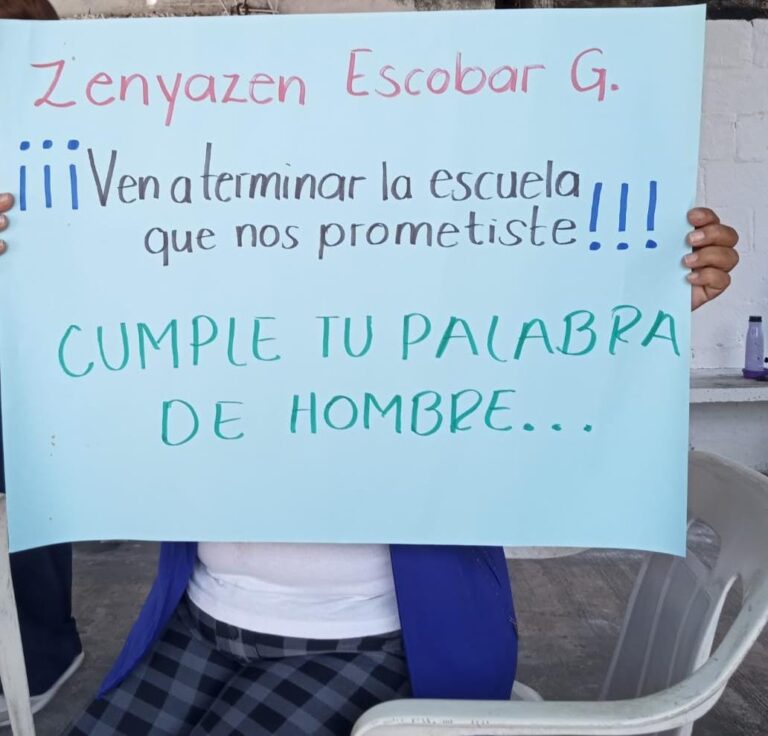 Zenyazen Escobar G.
¡¡¡Ven a terminar la escuela
que nos prometiste!!!
CUMPLE TU PALABRA
DE HOMBRE...